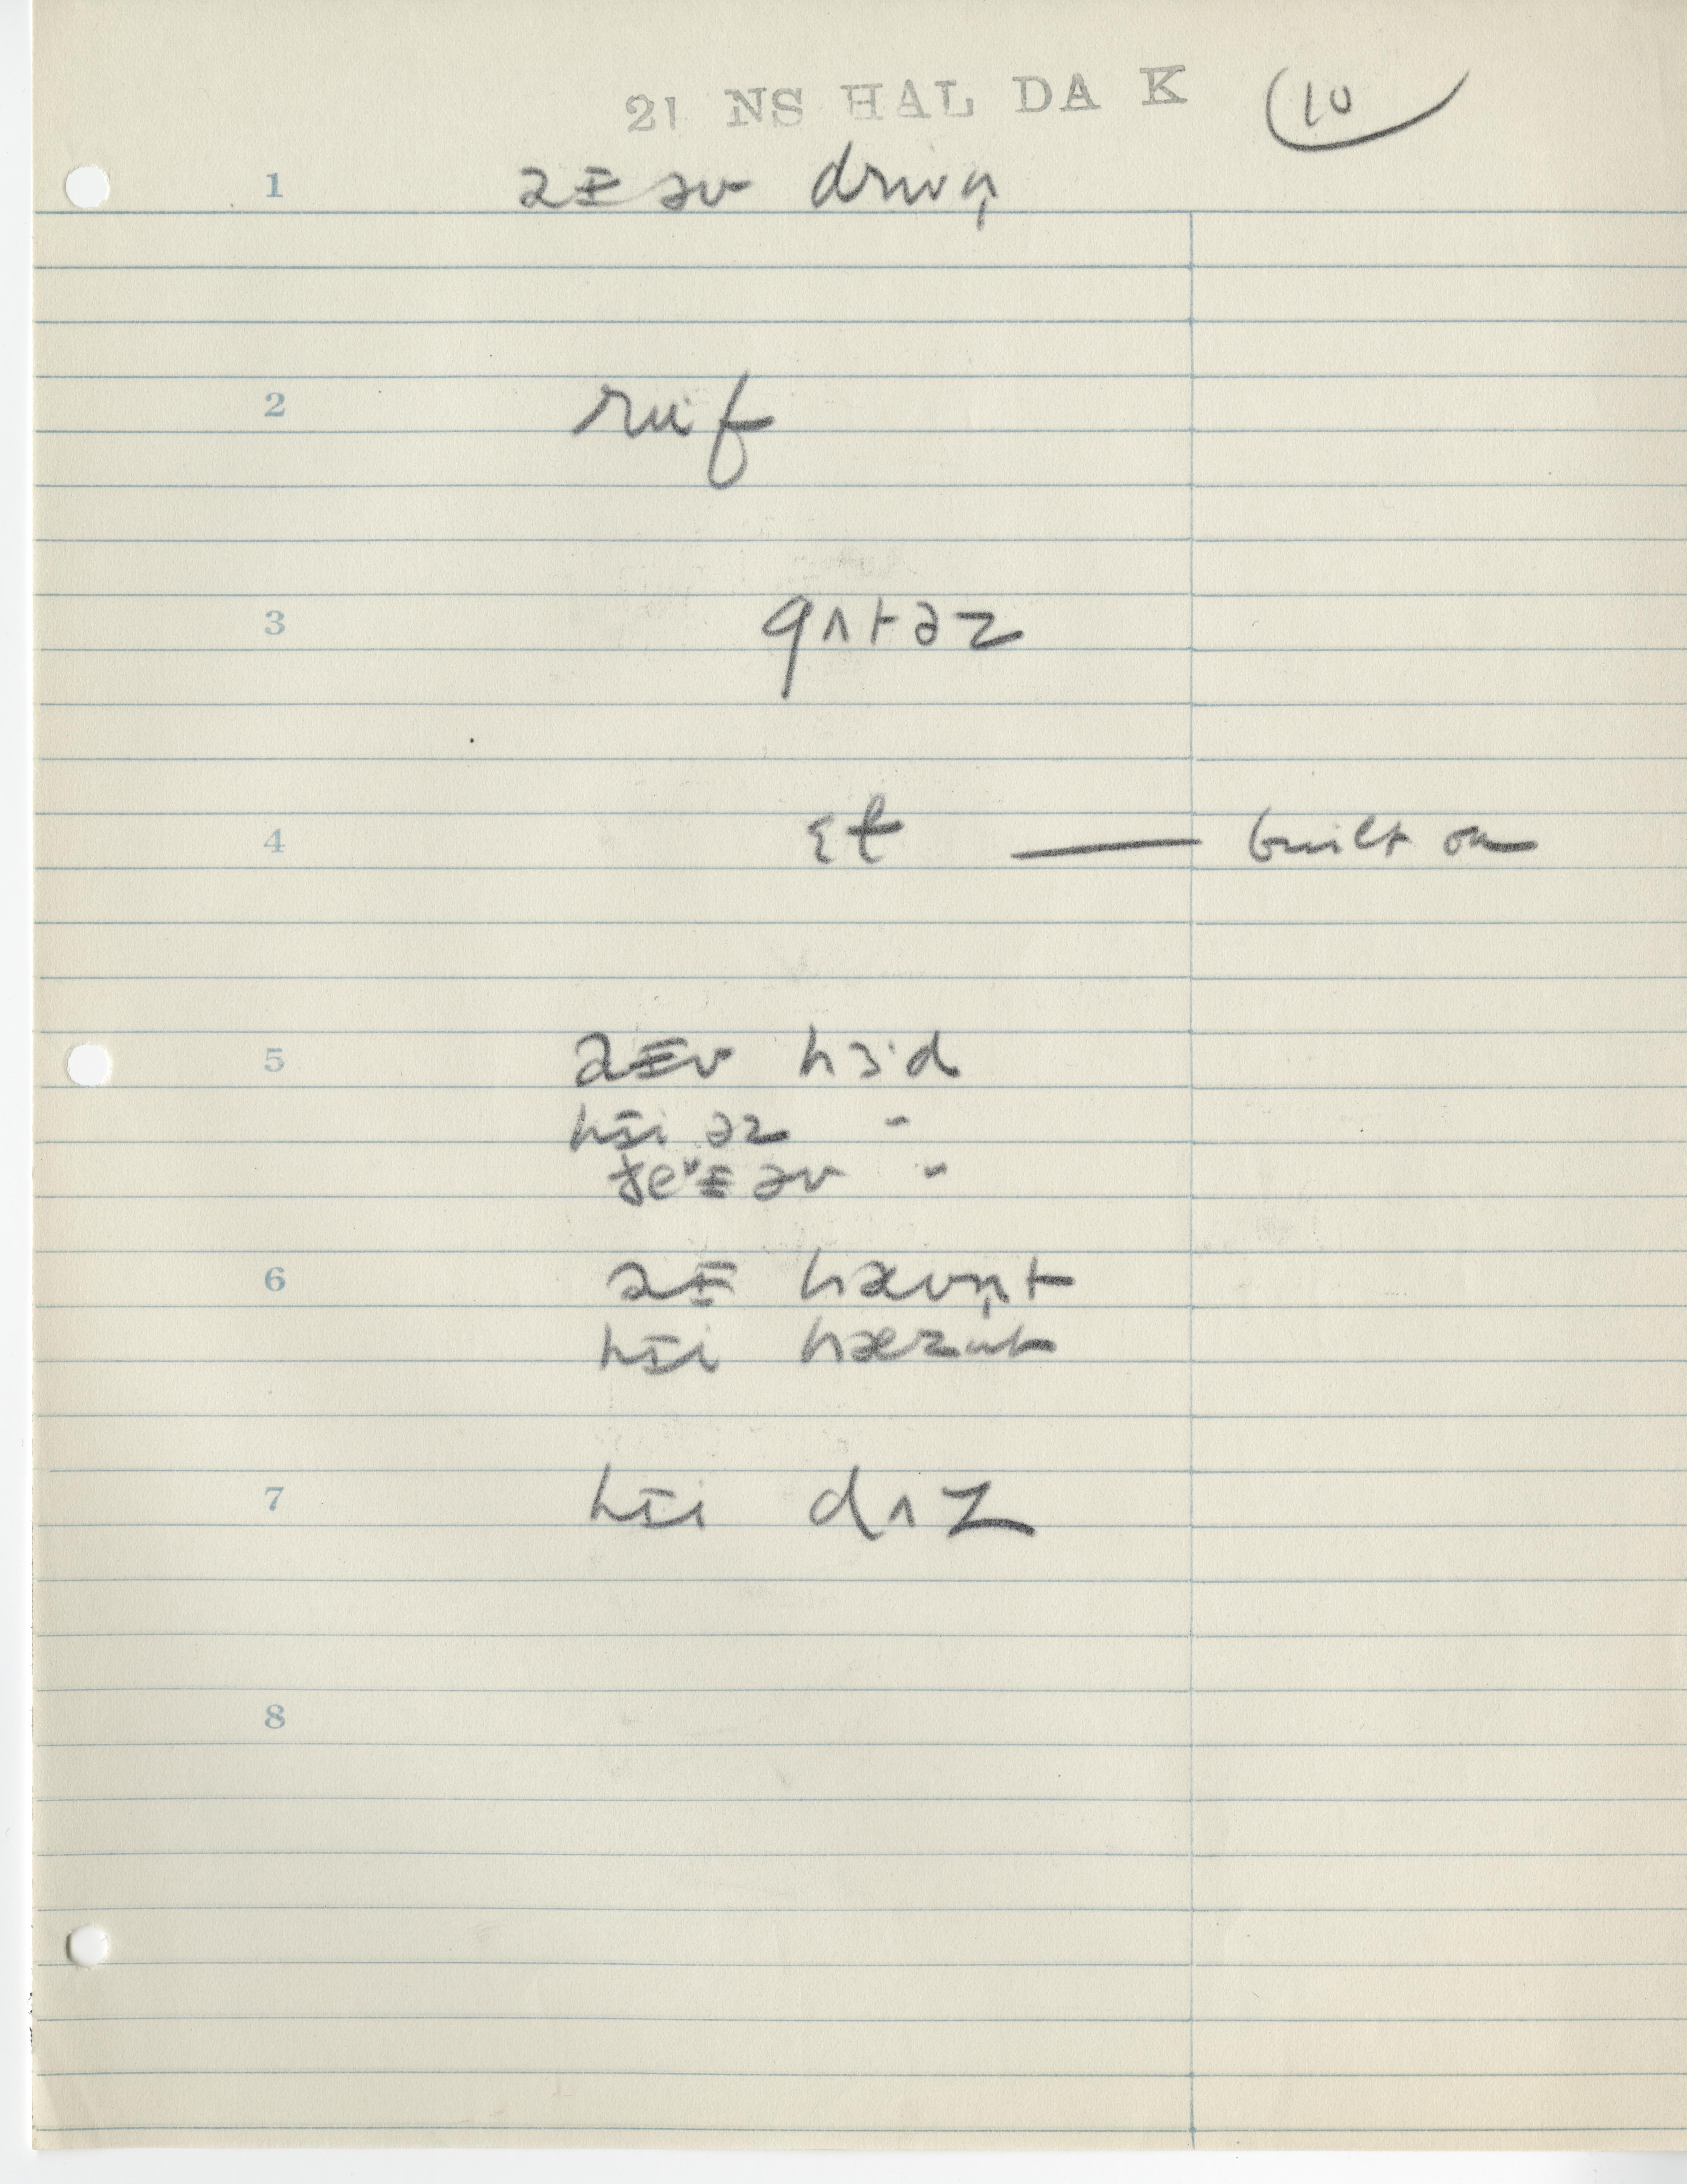 21 NS HAL DA K 10
1 aᵻ əv drɪvn̩
2 ruf
3 gʌtəz
4 ɛɫ — built on
5 aᵻv hɜ·d
hɪi əz "
ðeᵻ əv "
6 aᵻ hævn̩t
hɪi hæznt
7 hɪi dʌz
8